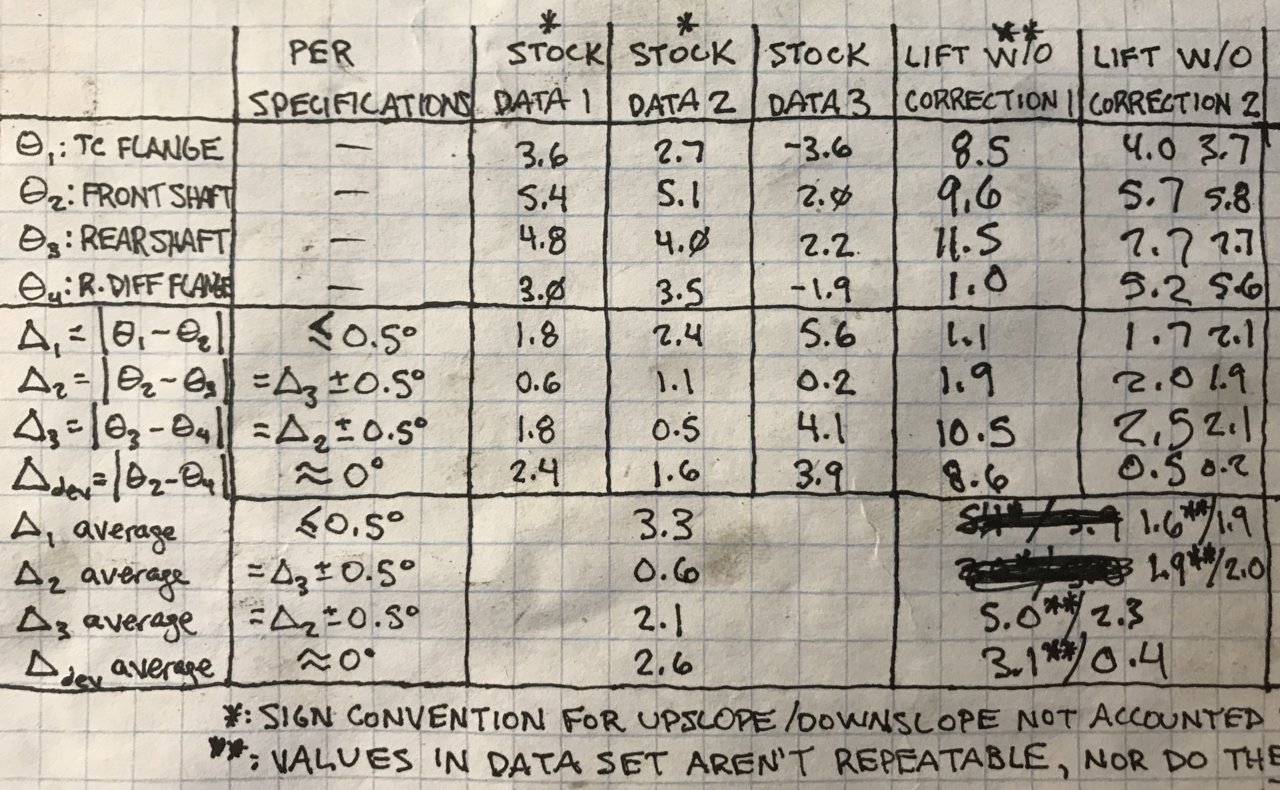 * * **
PER STOCK STOCK STOCK LIFT W/O LIFT W/O
SPECIFICATIONS DATA 1 DATA 2 DATA 3 CORRECTION 1 CORRECTION 2
θ₁: TC FLANGE — 3.6 2.7 -3.6 8.5 4.0 3.7
θ₂: FRONT SHAFT — 5.4 5.1 2.0 9.6 5.7 5.8
θ₃: REAR SHAFT — 4.8 4.0 2.2 11.5 7.7 7.7
θ₄: R. DIFF FLANGE — 3.0 3.5 -1.9 1.0 5.2 5.6
Δ₁ = |θ₁ - θ₂| ≤ 0.5° 1.8 2.4 5.6 1.1 1.7 2.1
Δ₂ = |θ₂ - θ₃| = Δ₃ ± 0.5° 0.6 1.1 0.2 1.9 2.0 1.9
Δ₃ = |θ₃ - θ₄| = Δ₂ ± 0.5° 1.8 0.5 4.1 10.5 2.5 2.1
Δdev = |θ₂ - θ₄| ≈ 0° 2.4 1.6 3.9 8.6 0.5 0.2
Δ₁ average ≤ 0.5° 3.3 1.6**/1.9
Δ₂ average = Δ₃ ± 0.5° 0.6 1.9**/2.0
Δ₃ average = Δ₂ ± 0.5° 2.1 5.0**/2.3
Δdev average ≈ 0° 2.6 3.1**/0.4
*: SIGN CONVENTION FOR UPSLOPE/DOWNSLOPE NOT ACCOUNTED
**: VALUES IN DATA SET AREN'T REPEATABLE, NOR DO THE